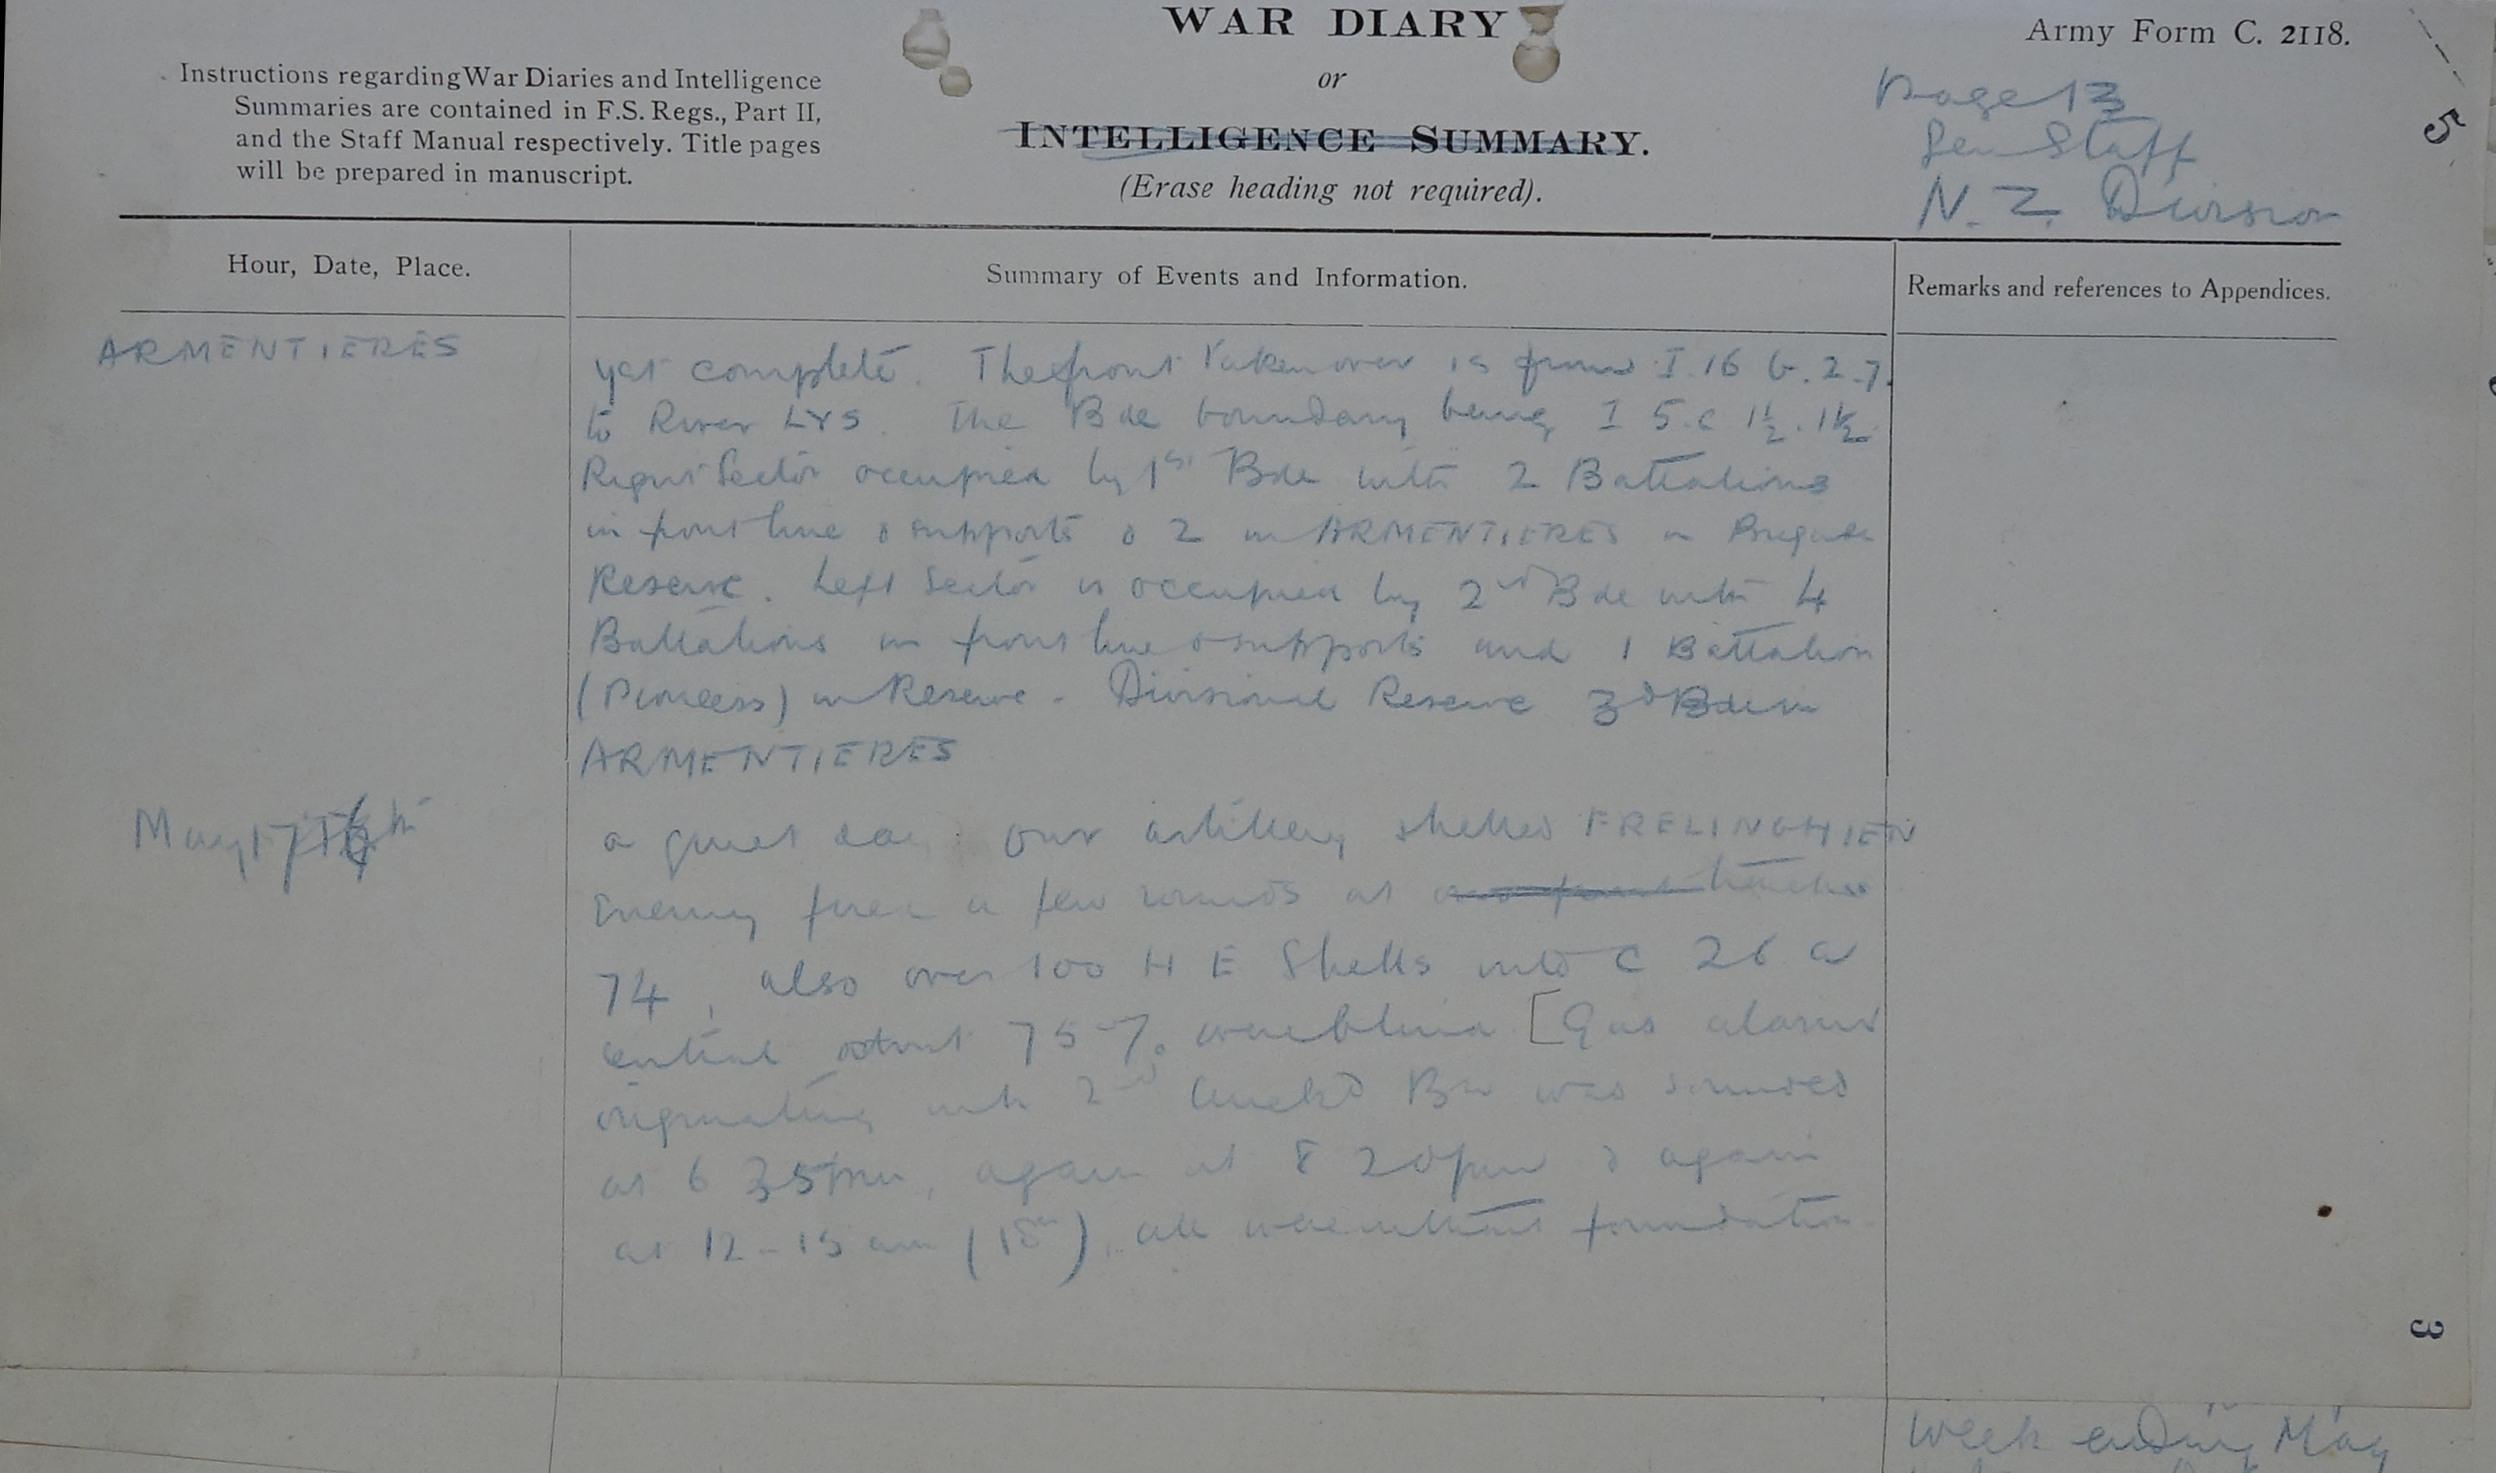 WAR DIARY
or
INTELLIGENCE SUMMARY.
(Erase heading not required).
Army Form C. 2118.
Instructions regarding War Diaries and Intelligence
Summaries are contained in F.S. Regs., Part II,
and the Staff Manual respectively. Title pages
will be prepared in manuscript.
Page 13
Gen Staff
N. Z. Division
5
Hour, Date, Place.
Summary of Events and Information.
Remarks and references to Appendices.
ARMENTIERES
yet complete. The front taken over is from I 16 b. 2.7.
to River LYS. The Bde boundary being I 5.c 1½.1½
Right Sector occupied by 1st Bde with 2 Battalions
in front line & supports & 2 in ARMENTIERES in Brigade
Reserve. Left Sector is occupied by 2nd Bde with 4
Battalions in front line & supports and 1 Battalion
(Pioneers) in Reserve - Divisional Reserve 3d Bde in
ARMENTIERES
May 17th
a quiet day. Our artillery shelled FRELINGHIEN
Enemy fired a few rounds at trenches
74, also over 100 H E Shells into C 26 a
central about 75% were blind [Gas alarm
originating with 2nd Bn was sounded
at 6 35pm, again at 8 20pm & again
at 12-15 am (18th), all were without foundation
3
Week ending May